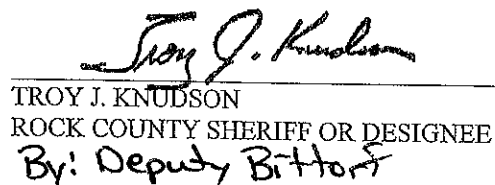 Troy J. Knudson
TROY J. KNUDSON
ROCK COUNTY SHERIFF OR DESIGNEE
By: Deputy Bittorf